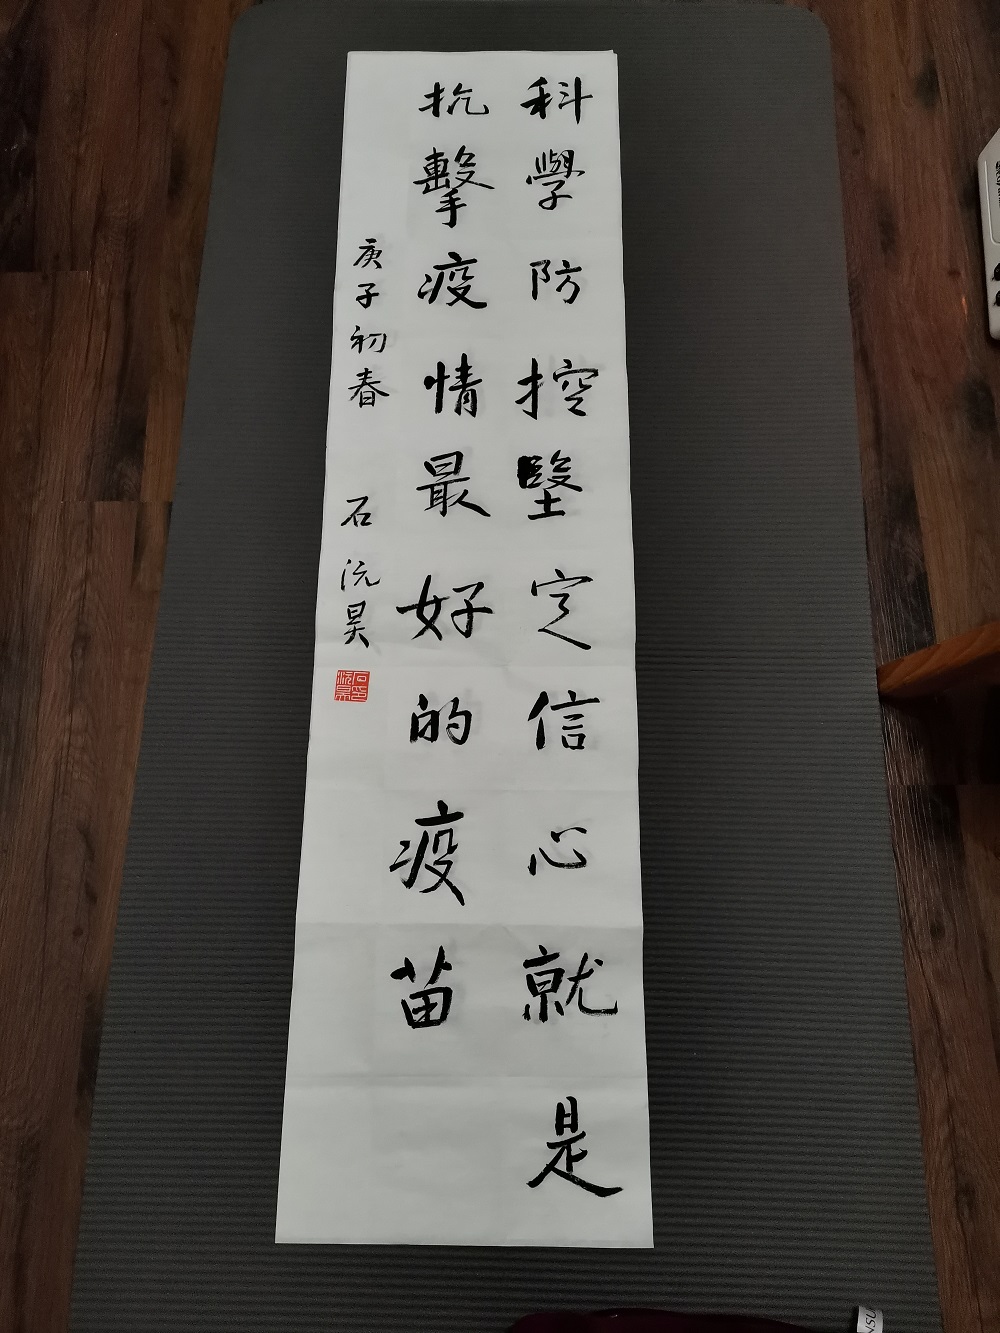 科學防控堅定信心就是
抗擊疫情最好的疫苗
庚子初春 石沅昊